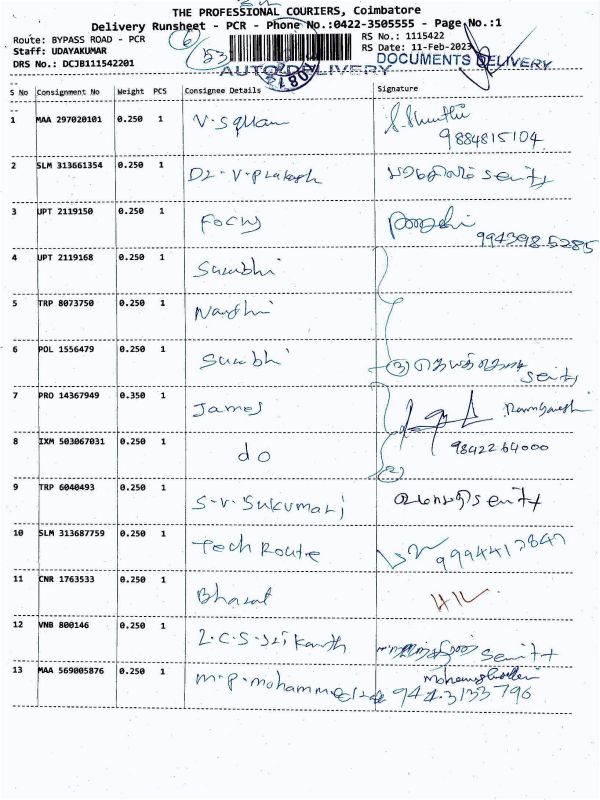 THE PROFESSIONAL COURIERS, Coimbatore
Delivery Runsheet - PCR - Phone No.:0422-3505555 - Page No.:1
Route: BYPASS ROAD - PCR
Staff: UDAYAKUMAR
DRS No.: DCJB111542201
RS No.: 1115422
RS Date: 11-Feb-2023
6
53
AUTO DELIVERY
DOCUMENTS DELIVERY
S No Consignment No Weight PCS Consignee Details Signature
1 MAA 297020101 0.250 1 V. Square
9884815104
2 SLM 313661354 0.250 1 Dr. V. Prakash
3 UPT 2119150 0.250 1 Focus
9943985285
4 UPT 2119168 0.250 1 Surabhi
5 TRP 8073750 0.250 1 Nandhi
6 POL 1556479 0.250 1 Surabhi 3
7 PRO 14367949 0.350 1 James
8 IXM 503067031 0.250 1 do 9842264000
2
9 TRP 6040493 0.250 1 S.V. Sukumari
10 SLM 313687759 0.250 1 Tech Route
11 CNR 1763533 0.250 1 Bharat
12 VNB 800146 0.250 1
13 MAA 569005876 0.250 1 M.P. Mohammed